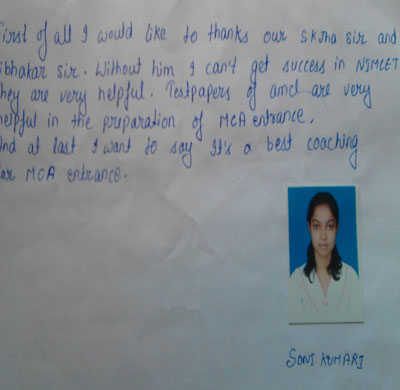 First of all I would like to thanks our SKJha sir and
ibhakar sir. Without him I can't get success in NIMCET
They are very helpful. Testpapers of and are very
helpful in the preparation of MCA entrance.
And at last I want to say It's a best coaching
for MCA entrance.
SONI KUMARI